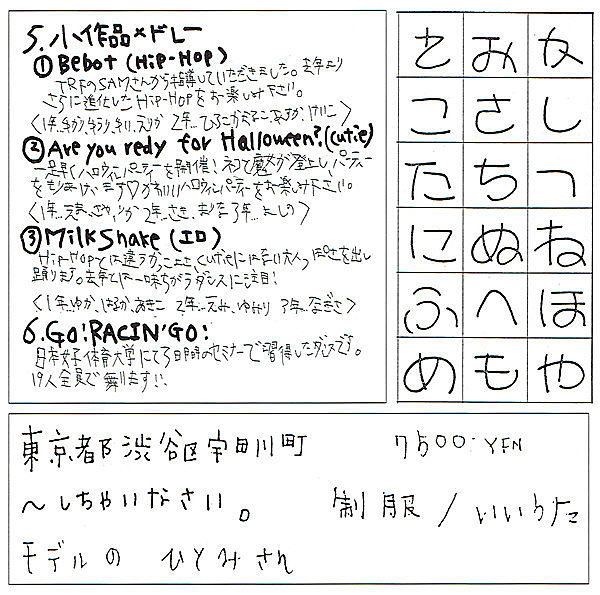 5. 小作品×ドレー
① Bebot (HiP-HoP)
TRFのSAMさんから指導していただきました。去年より
さらに進化したHiP-HoPをお楽しみ下さい。
② Are you redy for Halloween? (cutie)
一足早くハロウィンパーティーを開催!ネコと魔女が登場し、パーティー
ハロウィンパーティーをお楽しみ下さい。
③ MilkShake (エロ)
HiP-HoPとは違うかっこよさ、cutieには
踊ります。去年とは一味ちがうダンスに注目!
〈1年…ゆか、はるか、あきこ 2年…えみ、ゆかり 3年…なぎさ〉
6. GO! RACIN'GO!
日本女子体育大学にて3日間のセミナーで習得したダンスです。
19人全員で舞います!!
と お か
こ さ し
た ち つ
に ぬ ね
ふ へ ほ
め も や
東京都渋谷区宇田川町 7500:YEN
~しちゃいなさい。 制服/いいうた
モデルの ひとみさん